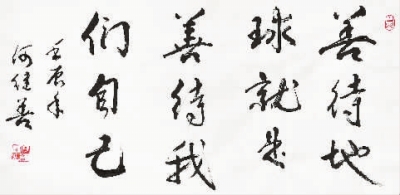 善待地
球就是
善待我
们自己
壬辰年
何佳善